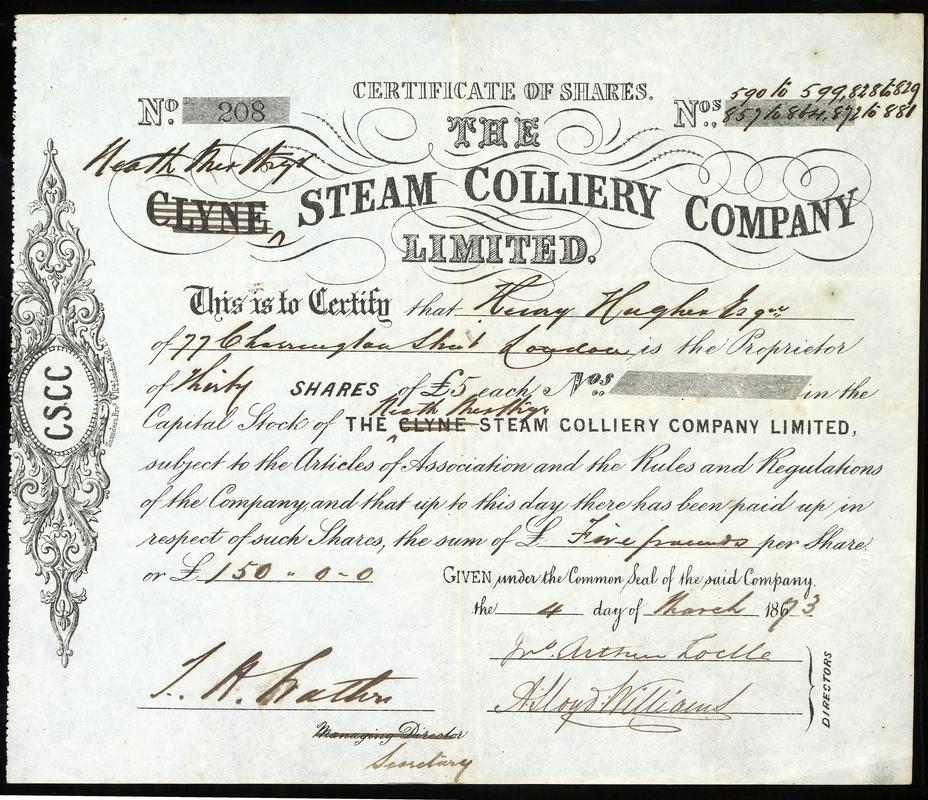 CERTIFICATE OF SHARES.
No. 208
Nos. 590 to 599, 828 to 829
857 to 864, 872 to 881
THE
Neath Merthyr
CLYNE STEAM COLLIERY COMPANY
LIMITED.
This is to Certify that Henry Hughes Esqre.
of 77 Charrington Street London is the Proprietor
of Thirty SHARES of £5 each, Nos. in the
Neath Merthyr
Capital Stock of THE CLYNE STEAM COLLIERY COMPANY LIMITED,
subject to the Articles of Association and the Rules and Regulations
of the Company, and that up to this day there has been paid up, in
respect of such Shares, the sum of £ Five pounds per Share.
or £ 150 " 0 - 0
GIVEN under the Common Seal of the said Company.
the 4 day of March 1873
Jno. Arthur
A. Lloyd Williams
DIRECTORS
Managing Director
Secretary
C.S.C.C